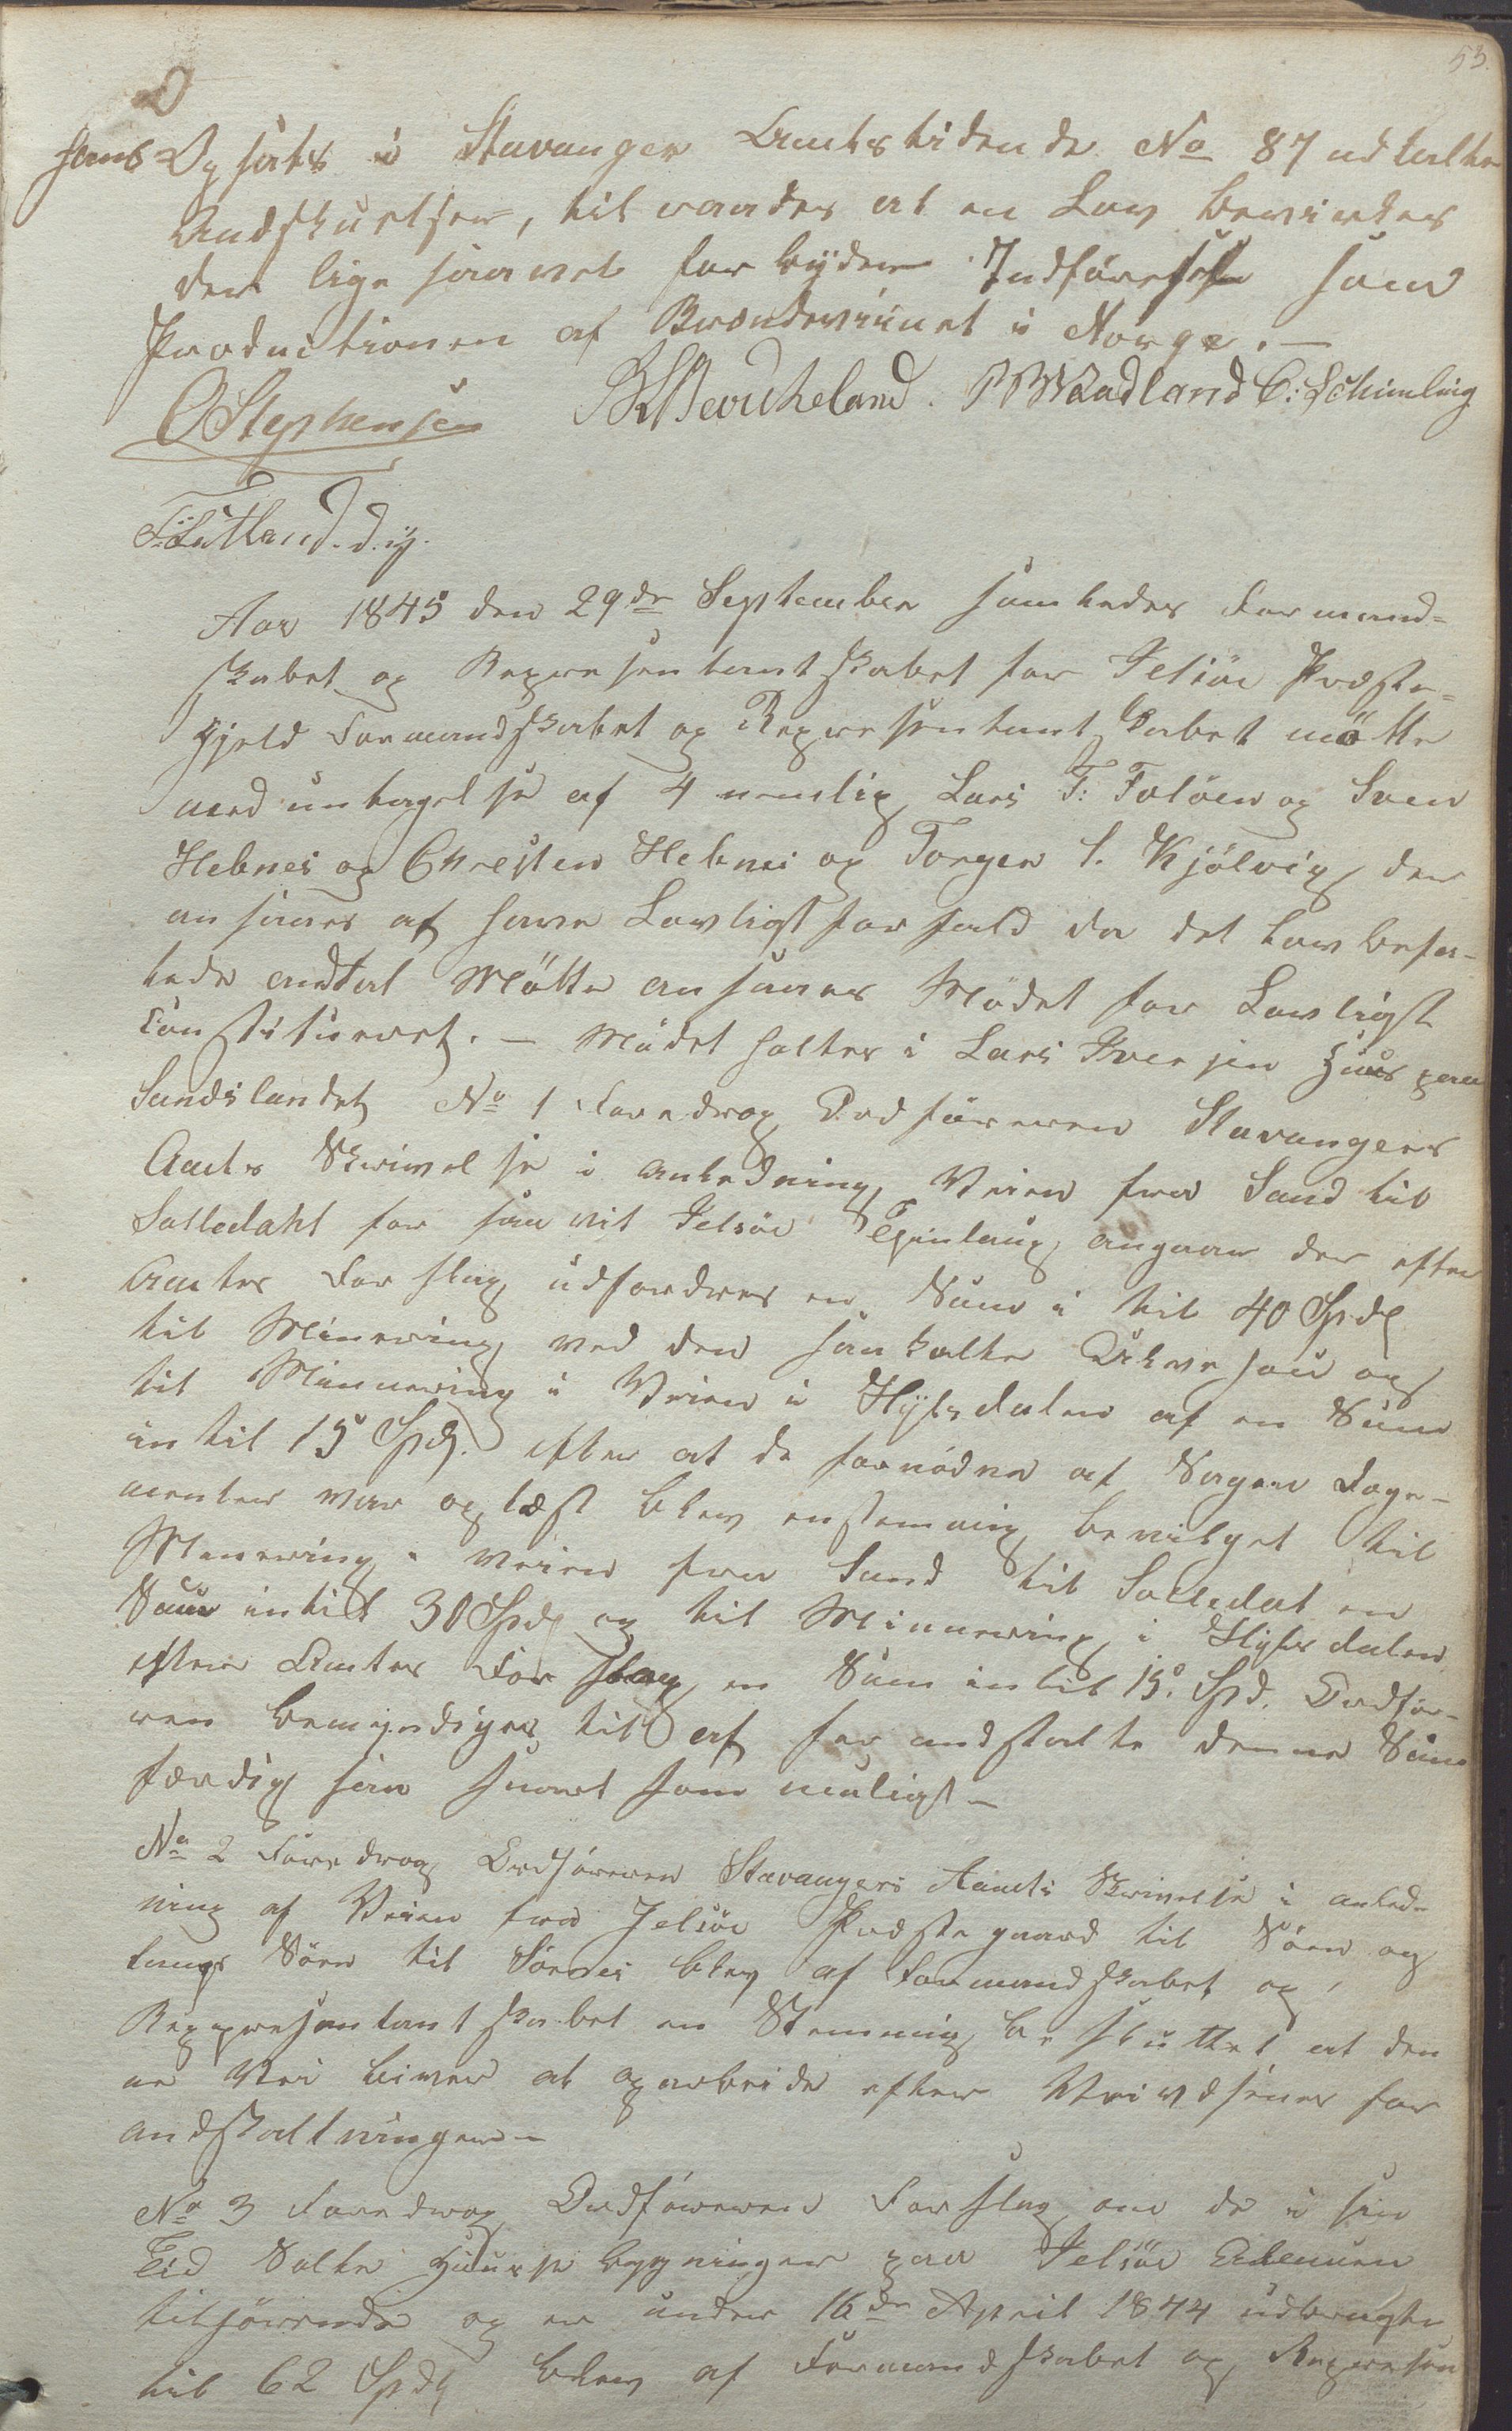 53.
hans Opsats i Stavanger Amtstidende No 87 udtalte
Andskuelser, tilraades at en Lov bevirkes
der lige saavel forbyder Indførelse som
Productionen af Brændeviinet i Norge. —
OStephensen Bovitzland. Wadland C: Schimling
Aar 1845 den 29de September samledes Formand-
skabet og Representantskabet for Jelsøe Præste-
gjeld Formandskabet og Representantskabet mötte
med untagelse af 4 nemlig Lars T: Foløen og Sven
Hebnes og Chresten Hebnes og Torger S. Kjølvig, der
ansaaes af have Lovligt forfald da det Lov befa-
lede andtal Mötte ansaaes Mødet for Lovligst
Constitueret. — Mødet holtes i Lars Iversen Huus paa
Sandslandet No 1 Foredrog Ordføreren Stavangers
Amts Skrivelse i anledning Veien fra Sand til
Solledahl for saa vit Jelsøe Thinlaug angaar der efter
Amtes Forslag udfordres en Sum i til 40 Spd
til Minering ved den saa kalte og
til Minnering i Veien i Hylsdalen af en Sum
intil 15 Spd. efter at de fornødne af Sagens Dogu-
menter var oplæst blev enstemmig bevilget til
Minering i Veien fra Sand til Solledal en
Sum intil 30 Spd og til Minnering i Hylsdalen
efter Amtes Forslag en Sum intil 15. Spd. Ordfø-
ren bemyndiges til af for andstalte denne Sum
færdig saa snart som muligt —
No 2 Foredrog Ordføreren Stavangers Aamts Skrivelse i anled-
ning af Veien fra Jelsøe Præstegaard til Søen og
langs Søen til Sørnes blev af Formandskabet og
Reppresentantskabet en Stemmig besluttet at den
ne Vei bliver at oparbeide efter Veivæsenes for
andstaltninger —
No 3 Foredrog Ordføreren Forslag om de i sin
Tid Solte Huusebygninger paa Jelsøe
tilhørende og er under 16de April 1844 udbragte
til 62 Spd blev af Formandskabet og Represen